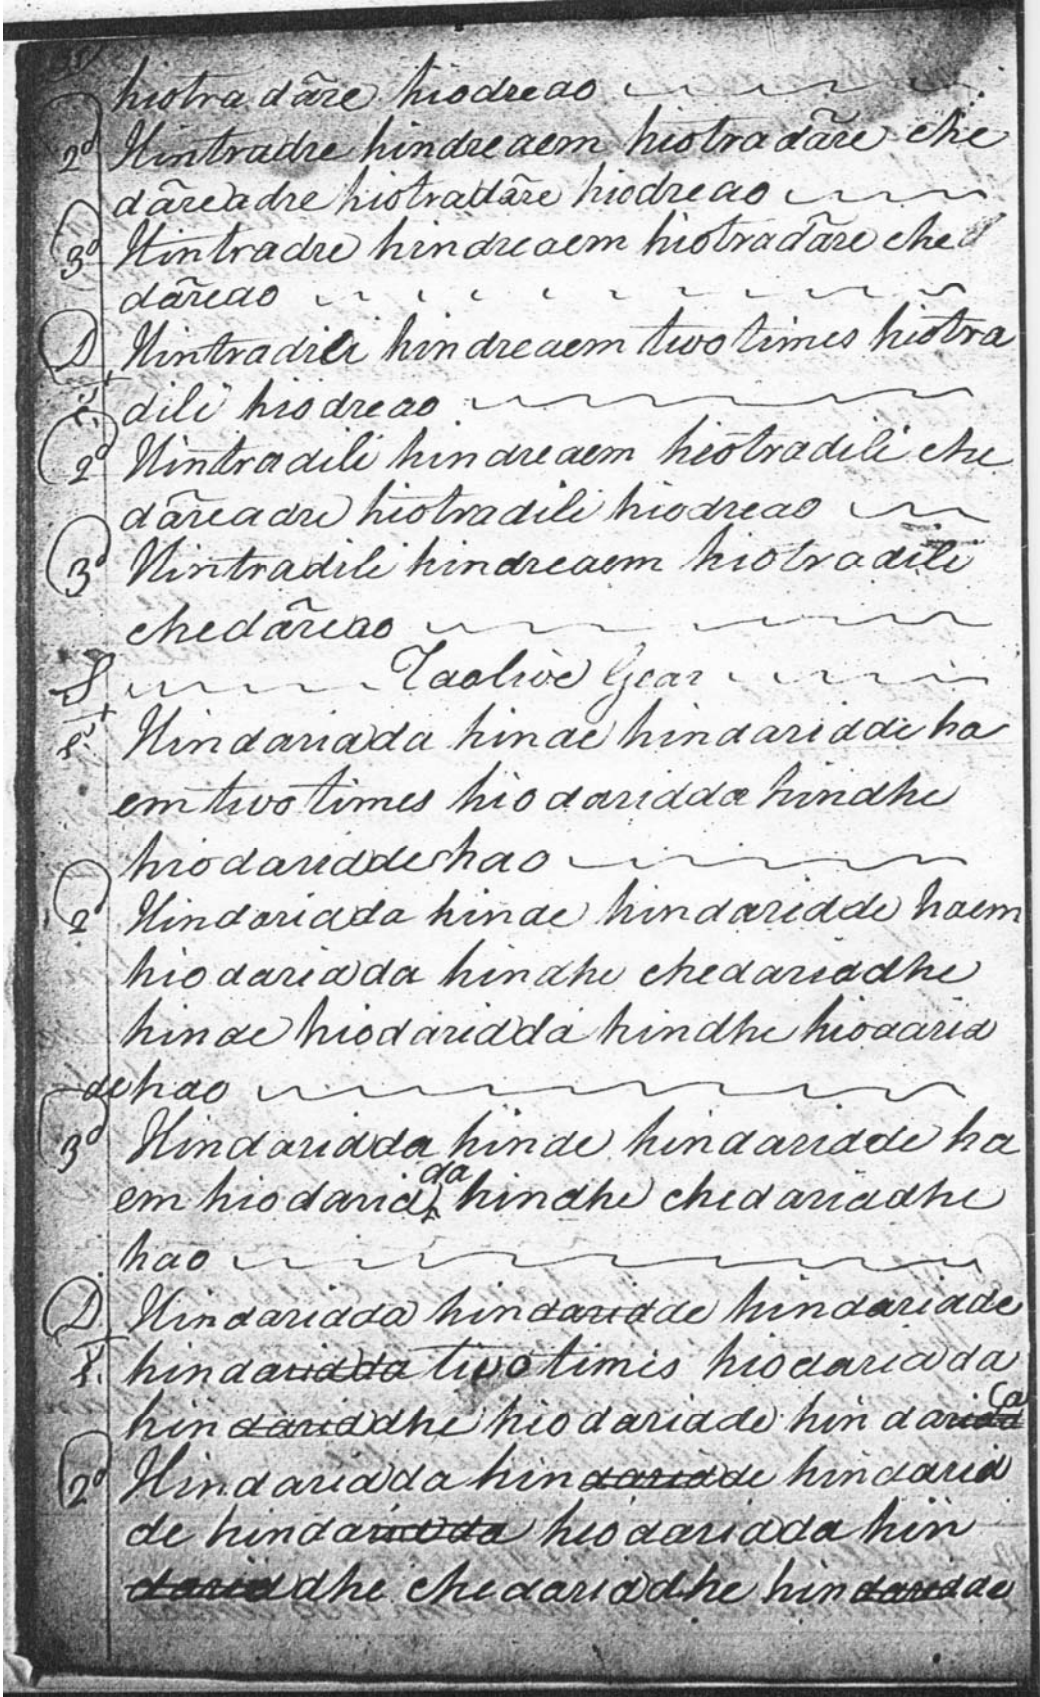 hiotra dãre hiodreao
2d Hintradre hindreaem hiotra dãre che
dãreadre hiotradãre hiodreao
3d Hintradre hindreaem hiotradãre ched
dãreao
D Hintradili hindreaem two times hiotra
dili hiodreao
2d Hintradili hindreaem hiotradili che
dãreadre hiotradili hiodreao
3d Hintradili hindreaem hiotradili
chedãreao
S Taolive Gear
Hindaridda hinde hindaridde ha
em two times hiodaridda hindhe
hiodaridde hao
2d Hindaridda hinde hindaridde haem
hiodaridda hindhe chedaridhe
hinde hiodaridda hindhe hiodarid
de hao
3d Hindaridda hinde hindaridde ha
em hiodarid da hindhe chedariddhe
hao
D Hindaridda hindaridde hindaridde
hindaridda two times hiodaridda
hindariddhe hiodaridde hindaridda
2d Hindaridda hindaridde hindarid
de hindaridda hiodaridda hin
dariddhe chedariddhe hindaridde